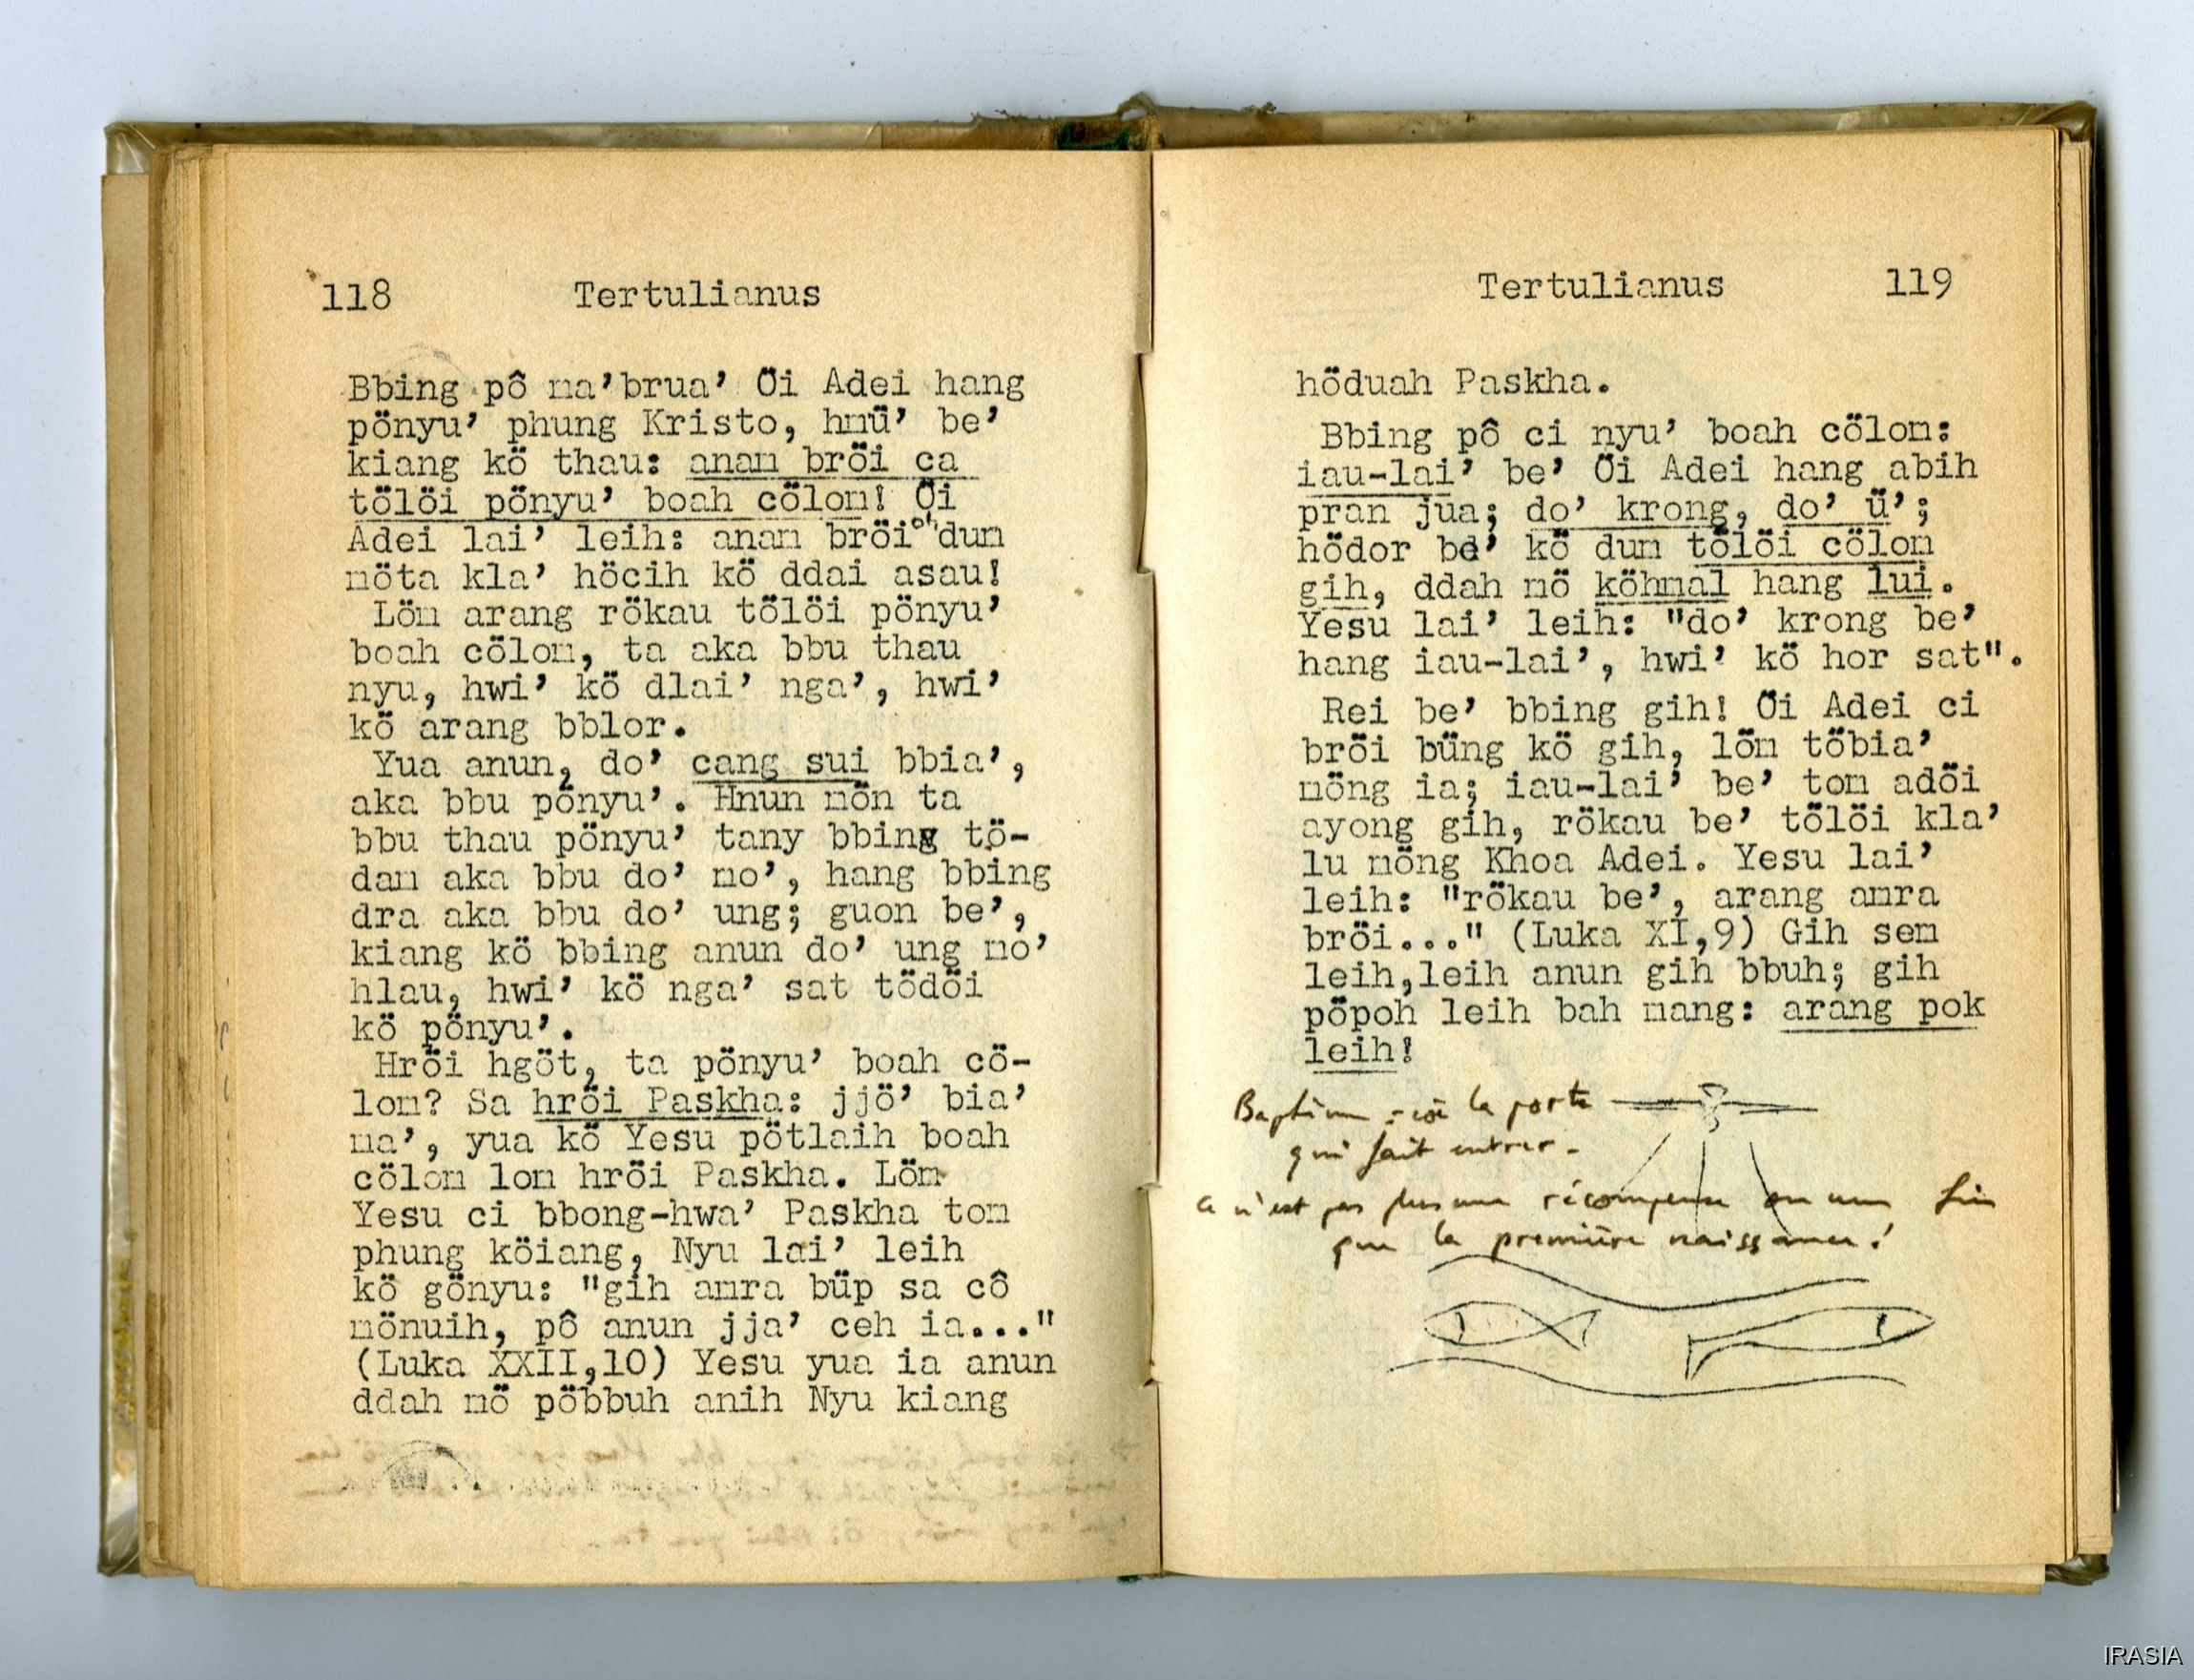 118 Tertulianus
Bbing pô ma’brua’ Öi Adei hang
pönyu’ phung Kristo, hmü’ be’
kiang kö thau: anam bröi ca
tölöi pönyu’ boah cölom! Öi
Adei lai’ leih: anam bröi dun
möta kla’ höcih kö ddai asau!
Löm arang rökau tölöi pönyu’
boah cölom, ta aka bbu thau
nyu, hwi’ kö dlai’ nga’, hwi’
kö arang bblor.
Yua anun, do’ cang sui bbia’,
aka bbu pönyu’. Hnun mön ta
bbu thau pönyu’ tany bbing tö-
dam aka bbu do’ mo’, hang bbing
dra aka bbu do’ ung; guon be’,
kiang kö bbing anun do’ ung mo’
hlau, hwi’ kö nga’ sat tödöi
kö pönyu’.
Hröi hgöt, ta pönyu’ boah cö-
lom? Sa hröi Paskha: jjö’ bia’
ma’, yua kö Yesu pötlaih boah
cölom lom hröi Paskha. Löm
Yesu ci bbong-hwa’ Paskha tom
phung köiang, Nyu lai’ leih
kö gönyu: "gih amra büp sa cô
mönuih, pô anun jja’ ceh ia..."
(Luka XXII,10) Yesu yua ia anun
ddah mö pöbbuh anih Nyu kiang
Tertulianus 119
höduah Paskha.
Bbing pô ci nyu’ boah cölom:
iau-lai’ be’ Öi Adei hang abih
pran jua; do’ krong, do’ ü’;
hödor be’ kö dum tölöi cölom
gih, ddah mö köhmal hang lui.
Yesu lai’ leih: "do’ krong be’
hang iau-lai’, hwi’ kö hor sat".
Rei be’ bbing gih! Öi Adei ci
bröi büng kö gih, löm töbia’
möng ia; iau-lai’ be’ tom adöi
ayong gih, rökau be’ tölöi kla’
lu möng Khoa Adei. Yesu lai’
leih: "rökau be’, arang amra
bröi..." (Luka XI,9) Gih sem
leih,leih anun gih bbuh; gih
pöpoh leih bah mang: arang pok
leih!
la porte
qui fait entrer -
ce n'est pas plus une récompense ou une fin
que la première naissance!
IRASIA